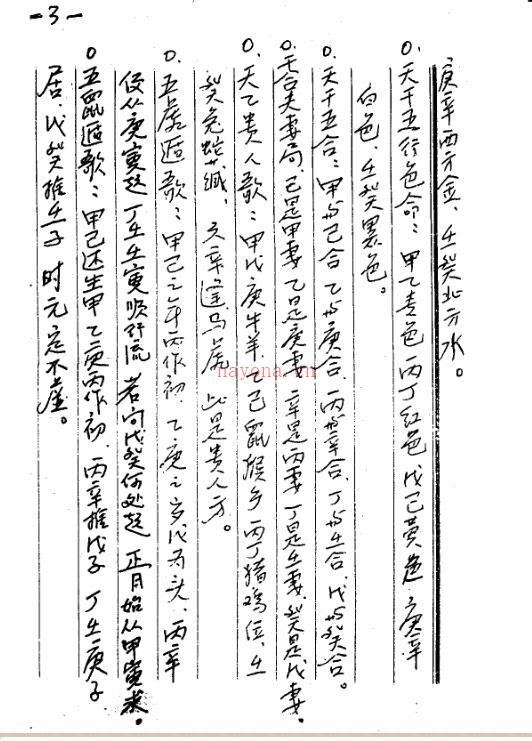 -3-
庚辛西方金、壬癸北方水。
0、天干五行色命：甲乙青色 丙丁红色 戊己黄色、庚辛
白色、壬癸黑色。
0、天干五合：甲与己合 乙与庚合、丙与辛合、丁与壬合、戊与癸合。
0、干合夫妻局、己是甲妻 乙是庚妻 辛是丙妻 丁是壬妻、癸是戊妻。
0、天乙贵人歌：甲戊庚牛羊、乙己鼠猴乡 丙丁猪鸡位、壬
癸兔蛇藏、六辛逢马虎 此是贵人方。
0、五虎遁歌：甲己之年丙作初、乙庚之岁戊为头、丙辛
便从庚寅起 丁壬壬寅顺行流 若问戊癸何处起 正月始从甲寅求。
0 五鼠遁歌：甲己还生甲 乙庚丙作初、丙辛推戊子 丁壬庚子
居、戊癸推壬子 时元定不虚。
hayona.cn